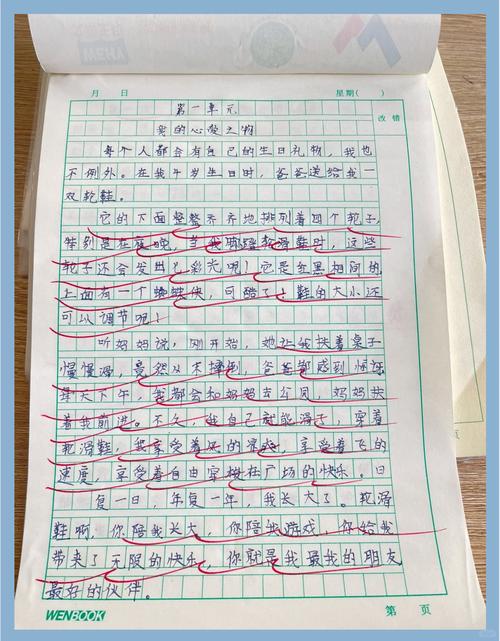 月 日 星期( )
改错
第一单元
我的心爱之物
每个人都会有自己的生日礼物，我也
不例外。在我4岁生日时，爸爸送给我一
双轮鞋。
它的下面整整齐齐地排列着四个轮子，
特别是在夜晚，当我脚踩轮滑鞋时，这些
轮子还会发出彩光呢！它是红黑相间的
上面有一个蜘蛛侠，可酷了！鞋的大小还
可以调节呢！
听妈妈说，刚开始，她让我扶着桌子
慢慢滑，竟然从未摔倒，爸爸都感到惊讶
每天下午，我都会和妈妈去公园，妈妈扶
着我前进。不久，我自己就能滑了，穿着
轮滑鞋，我享受着的凉爽，享受着飞的
速度，享受着自由穿梭在广场的快乐。日
复一日，年复一年，我长大了。轮滑
鞋啊，你陪我长大，你陪我游戏，你给我
带来了无限的快乐，你就是我最我的朋友
最好的伙伴。
WENBOOK 第 页
页